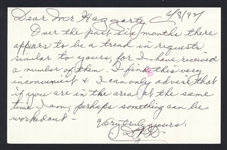 Dear Mr Haggarty 6/3/97
Over the past six months there
appears to be a trend in requests
similar to yours, for I have received
a number of them. I find this very
inconvenient & I can only advise that
if you are in the area at the same
time I am, perhaps something can be
worked out -
Very truly yours,